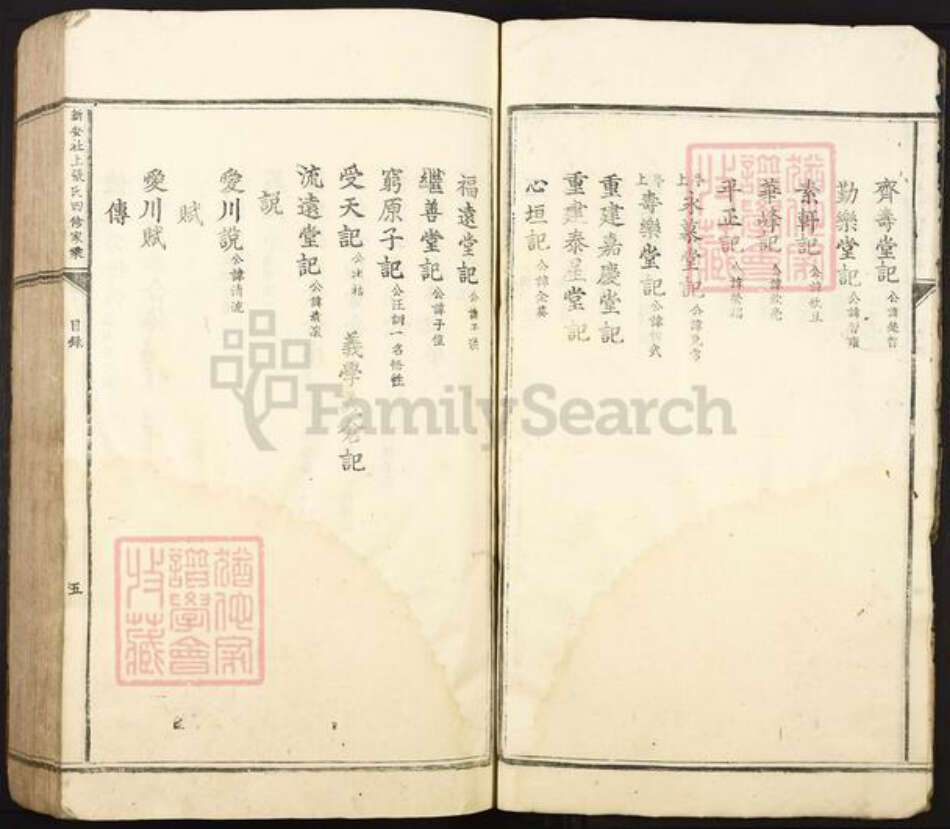 齊壽堂記 公諱
勤樂堂記 公諱
素軒記 公諱
華峰記 公諱
平正記 公諱
永慕堂記 公諱
壽樂堂記 公諱 武
重建嘉慶堂記
重建泰星堂記
心垣記 公諱金
福遠堂記 公諱子
繼善堂記 公諱子值
窮原子記 公汪訓一名悟性
受天記 義學 倉記
流遠堂記 公諱
說
愛川說 公諱清流
賦
愛川賦
傳
新安社上張氏四修家乘
目錄
五
譜學會
特藏
FamilySearch